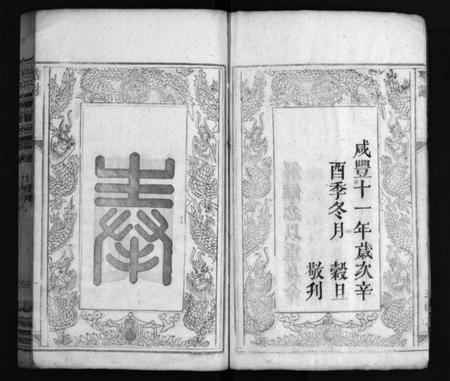 咸豐十一年歲次辛
酉季冬月 穀旦
敬刋
奉